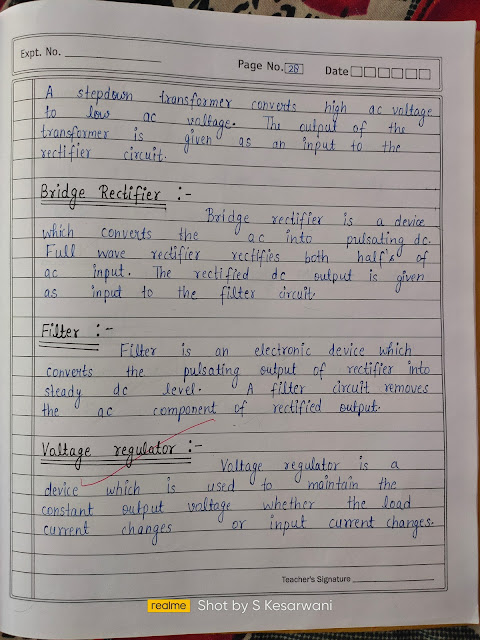 Expt. No.
Page No. 28
Date
A stepdown transformer converts high ac voltage
to low ac voltage. The output of the
transformer is given as an input to the
rectifier circuit.
Bridge Rectifier :-
Bridge rectifier is a device
which converts the ac into pulsating dc.
Full wave rectifier rectifies both half's of
ac input. The rectified dc output is given
as input to the filter circuit.
Filter :-
Filter is an electronic device which
converts the pulsating output of rectifier into
steady dc level. A filter circuit removes
the ac component of rectified output.
Voltage regulator :-
Voltage regulator is a
device which is used to maintain the
constant output voltage whether the load
current changes or input current changes.
Teacher's Signature
realme Shot by S Kesarwani